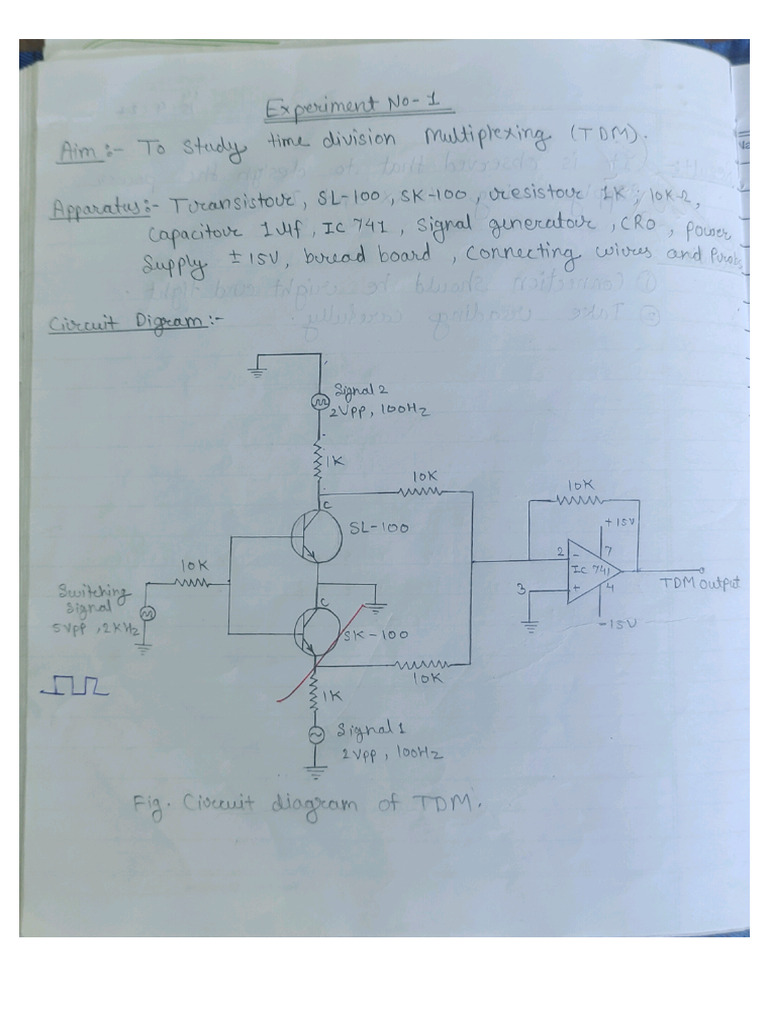 Experiment No-1
Aim:- To study time division Multiplexing (TDM).
Apparatus:- Transistour, SL-100, SK-100, resistour 1K, 10K Ω,
Capacitour 1μf, IC 741, Signal generatour, CRO, power
Supply ± 15V, bread board, Connecting wires and Probe
Circuit Digram:-
Signal 2
2Vpp, 100Hz
1K
10K
10K
C
SL-100
+15V
2
-
7
IC 741
10K
Switching
Signal
5Vpp, 2KHz
3
+
4
TDM output
-15V
C
SK-100
10K
1K
Signal 1
2Vpp, 100Hz
Fig. Circuit diagram of TDM.